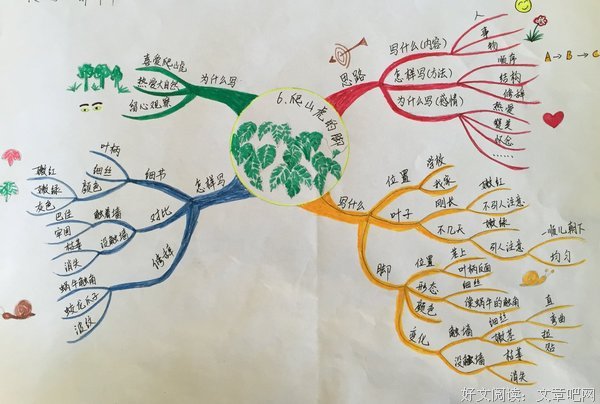 6.爬山虎的脚
思路
写什么(内容)
人
事
物
怎样写(方法)
顺序
结构
修辞
为什么写(感情)
热爱
赞美
怀念
……
A → B → C
为什么写
喜爱爬山虎
热爱大自然
细心观察
怎样写
细节
叶柄
细丝
颜色
嫩红
嫩绿
灰色
对比
触着墙
巴住
牢固
没触墙
枯萎
消失
修辞
蜗牛触角
蛟龙爪子
波纹
写什么
位置
学校
我家
叶子
刚长
嫩红
不引人注意
不几天
嫩绿
引人注意
一顺儿朝下
均匀
脚
位置
茎上
叶柄反面
形态
细丝
像蜗牛的触角
颜色
变化
触墙
细丝
直
弯曲
嫩茎
拉
贴
没触墙
枯萎
消失
好文阅读：文章吧网